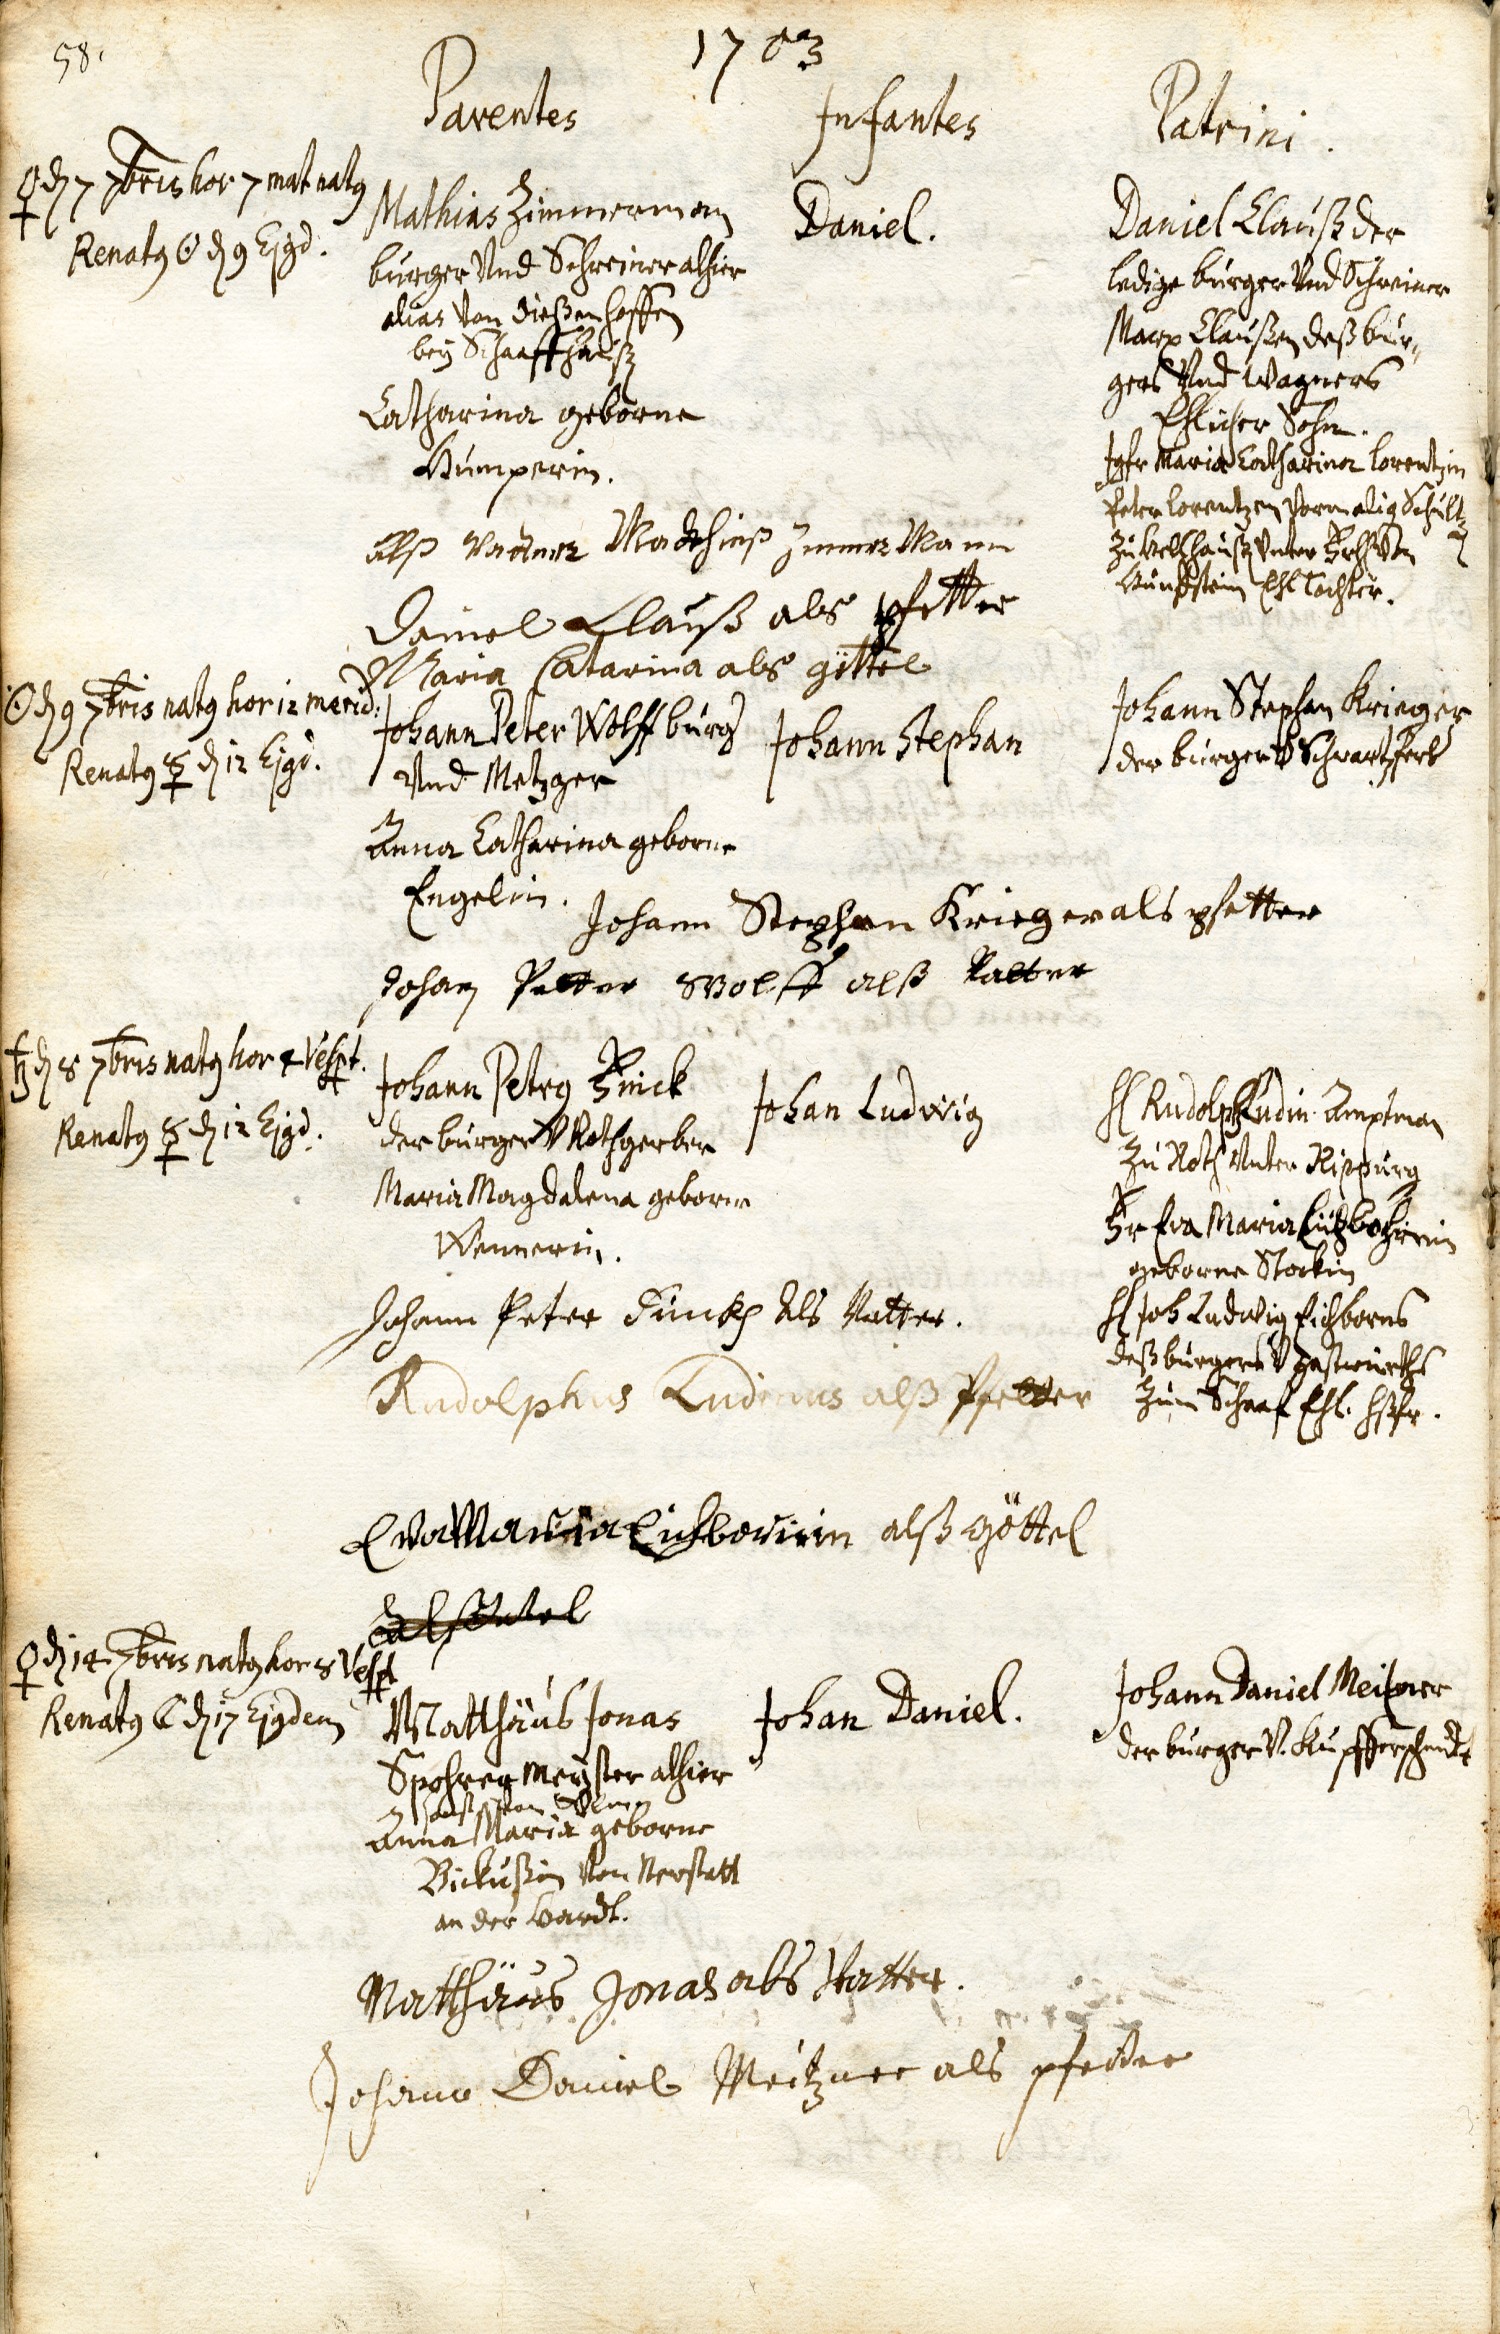 58.
1703
Parentes
Infantes
Patrini.
♀ d 7 7bris hor 7 mat nat9
Renat9 ☉ d 9 Ejgd.
Mathias Zimmerman
burger Und Schreiner alhier
alias von Dießenhoffen
bey Schaaffhauß
Catharina geborne
Humperin.
Daniel.
Daniel Clauß der
ledige burger Und Schreiner
Marx Claußen deß bur„
gers Und Wagners
Ehlicher Sohn.
Jgfr Maria Catharina Lorentzin
Peter Lorentzen Vormalig Schult
Ehl Tochter.
alß Vatter Matthias Zimmer Mann
Daniel Clauß als pfetter
Maria Catarina als göttel
☉ d 9 7bris nat9 hor 12 merid:
Renat9 ☿ d 12 Ejgd.
Johann Peter Wolff burg
Und Metzger
Anna Catharina geborne
Engelin.
Johann Stephan
Johann Stephan Krieger
der burger V Schwartzferb
Johann Stephan Krieger als pfetter
Johan Petter Wolff alß Vatter
♄ d 8 7bris nat9 hor 4 Vespt.
Renat9 ☿ d 12 Ejgd.
Johann Petry Finck
der burger V Rothgerber
Maria Magdalena geborne
Wennerin.
Johan Ludwig
H Rudolph Ludin Amptman
Zu Roth Unter Rippurg
Fr Eva Maria Eichbornin
geborne Storkin
H Joh Ludwig Eichborns
deß burgers V gastwürths
Zum Schaaf Ehl. Hßfr.
Johann Peter Finck Als Vatter.
Rudolphus Ludinus alß Pfetter
Eva Maria Eichbornin alß göttel
♀ d 14 7bris nat9 hor 8 Vespt
Renat9 ☾ d 17 Ejgdem
Matthäus Jonas
Spohrer meyster alhier
sonst von Ulm
Anna Maria geborne
Bickußin Von Nerstatt
an der Hardt.
Johan Daniel.
Johann Daniel Meitzner
der burger V. Kupfferschmidt
Matthäus Jonas als Vatter.
Johann Daniel Meitzner als pfetter